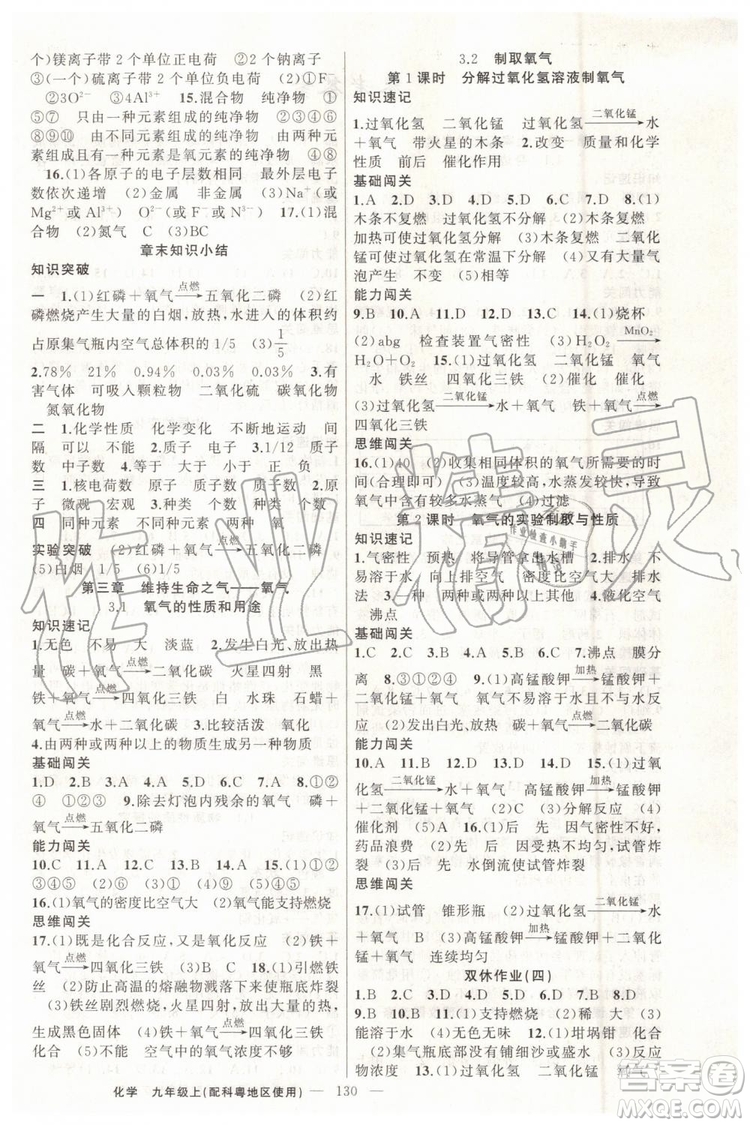 个)镁离子带 2 个单位正电荷 ②2 个钠离子
③(一个)硫离子带 2 个单位负电荷 (2)①F
②3O²⁻ ③2P ④4Al³⁺ 15.混合物 纯净物
①②⑦ 只由一种元素组成的纯净物 ③⑤⑥
⑧⑨⑩ 由不同元素组成的纯净物 ④⑧ 由两种
元素组成且其中一种是氧元素的纯净物
16.(1)各原子的电子层数相同 最外层电子
数依次递增 (2)金属 非金属 (3)Na⁺(或
Mg²⁺或 Al³⁺) O²⁻(或 F⁻) 17.(1)混
合物 (2)氮气 (3)C (3)BC
章末知识小结
知识突破
一 1.(1)红磷+氧气 点燃→ 五氧化二磷 (2)红
磷燃烧产生大量的白烟,放热,水进入的体积约
占原集气瓶内空气总体积的 1/5 (3)1/5
2.78% 21% 0.94% 0.03% 0.03% 3.有
害气体 可吸入颗粒物 二氧化硫 碳氧化物
氮氧化物
二 1.化学性质 化学变化 不断地运动 间
隔 可以 不能 2.质子 电子 3.1/12 质子
数 中子数 4.等于 大于 小于 正 负
三 1.核电荷数 质子数 2.质子数 3.分子 原
子 微观 宏观 种类 个数 种类 个数
四 同种元素 不同种元素 两种 氧
实验突破
(5)白烟 1/5 (6)大
第三章 维持生命之气——氧气
3.1 氧气的性质和用途
知识速记
1.无色 不易 大 淡蓝 2.发生白光,放出热
量 碳+氧气 点燃→ 二氧化碳 火星四射 黑
铁+氧气 点燃→ 四氧化三铁 白 水珠 石蜡+
氧气 点燃→ 水+二氧化碳 3.比较活泼 氧化
4.由两种或两种以上的物质生成另一种物质
基础闯关
1.D 2.A 3.B 4.D 5.D 6.A 7.B 8.①②
④ ①③⑤ ①② 9.除去灯泡内残余的氧气 磷+
氧气 点燃→ 五氧化二磷
能力闯关
10.C 11.A 12.A 13.C 14.D 15.(1)①②
③④⑤ (2)①②③④⑤ (3)①②③④ ⑤
16.(1)氧气的密度比空气大 (2)氧气能支持燃烧
思维闯关
17.(1)既是化合反应,又是氧化反应 (2)铁+
氧气 点燃→ 四氧化三铁 B C 18.(1)引燃铁
丝 (2)防止高温的熔融物溅落下来使瓶底炸裂
(3)铁丝剧烈燃烧,火星四射,放出大量的热,
生成黑色固体 (4)铁+氧气 点燃→ 四氧化三铁
化合 (5)空气中氧气的浓度不够
3.2 制取氧气
第 1 课时 分解过氧化氢溶液制氧气
知识速记
1.过氧化氢 二氧化锰 过氧化氢 二氧化锰→ 水
+氧气 带火星的木条 2.改变 质量和化学
性质 前后 催化作用
基础闯关
1.A 2.D 3.D 4.D 5.D 6.D 7.B 8.(1)
木条不复燃 过氧化氢不分解 (2)木条复燃
加热可使过氧化氢分解 (3)木条复燃 二氧化
锰可使过氧化氢在常温下分解 (4)大量气
泡产生 不变 (5)相等
能力闯关
9.B 10.A 11.D 12.D 13.A 14.(1)烧杯
(2)abg 检查装置气密性 (3)H₂O₂ MnO₂→
H₂O+O₂ 15.(1)过氧化氢 二氧化锰 氧气
水 铁丝 四氧化三铁 (2)催化 催化
(3)过氧化氢 二氧化锰→ 水+氧气 铁+氧气 点燃→
四氧化三铁
思维闯关
16.(1)40 (2)收集相同体积的氧气所需要的时
间(合理即可) (3)温度较高,水蒸发较快,导致
氧气中含有较多水蒸气 (4)过滤
第 2 课时 氧气的实验制取与性质
知识速记
1.气密性 预热 将导管拿出水槽 2.不易
易溶于水 向上排空气 密度比空气大 排水
法 3.一种 两种或两种以上 4.液化空气
沸点
基础闯关
1.C 2.C 3.B 4.D 5.A 6.D 7.沸点 分
离 8.③①②④ 9.(1)高锰酸钾 加热→ 锰酸钾+
二氧化锰+氧气 氧气不易溶于水且不与水反
应 (2)发出白光、放热 碳+氧气 点燃→ 二氧化碳
能力闯关
10.A 11.A 12.D 13.D 14.A 15.(1)过氧
化氢 二氧化锰→ 水+氧气 高锰酸钾 加热→ 锰酸钾
+二氧化锰+氧气 (2)C (3)分解反应 (4)
催化剂 (5)A 16.(1)氧气不足,燃烧不充分
药品浪费 (2)收集的氧气不纯 (3)试管炸
裂 (4)后 先 水倒流使试管炸裂
思维闯关
17.(1)试管 锥形瓶 (2)过氧化氢 二氧化锰→ 水
+氧气 B F (3)高锰酸钾 加热→ 锰酸钾+二
氧化锰+氧气 连续均匀
双休作业(四)
1.B 2.C 3.B 4.C 5.B 6.D 7.D 8.C
9.B 10.B 11.(1)支持燃烧 (2)稀 大 (3)
能溶于水 (4)无色无味 12.(1)坩埚钳 化合
(2)集气瓶底部无少量水或未铺一层细沙
化学 九年级上(配科粤地区使用) — 130 —
作业精灵
作业检查小助手